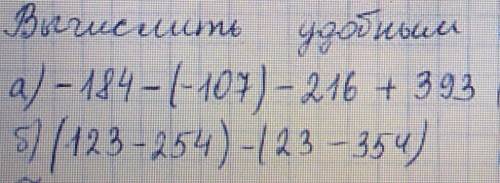 Вычислить удобным
а) - 184 - (-107) - 216 + 393
б) (123 - 254) - (23 - 354)